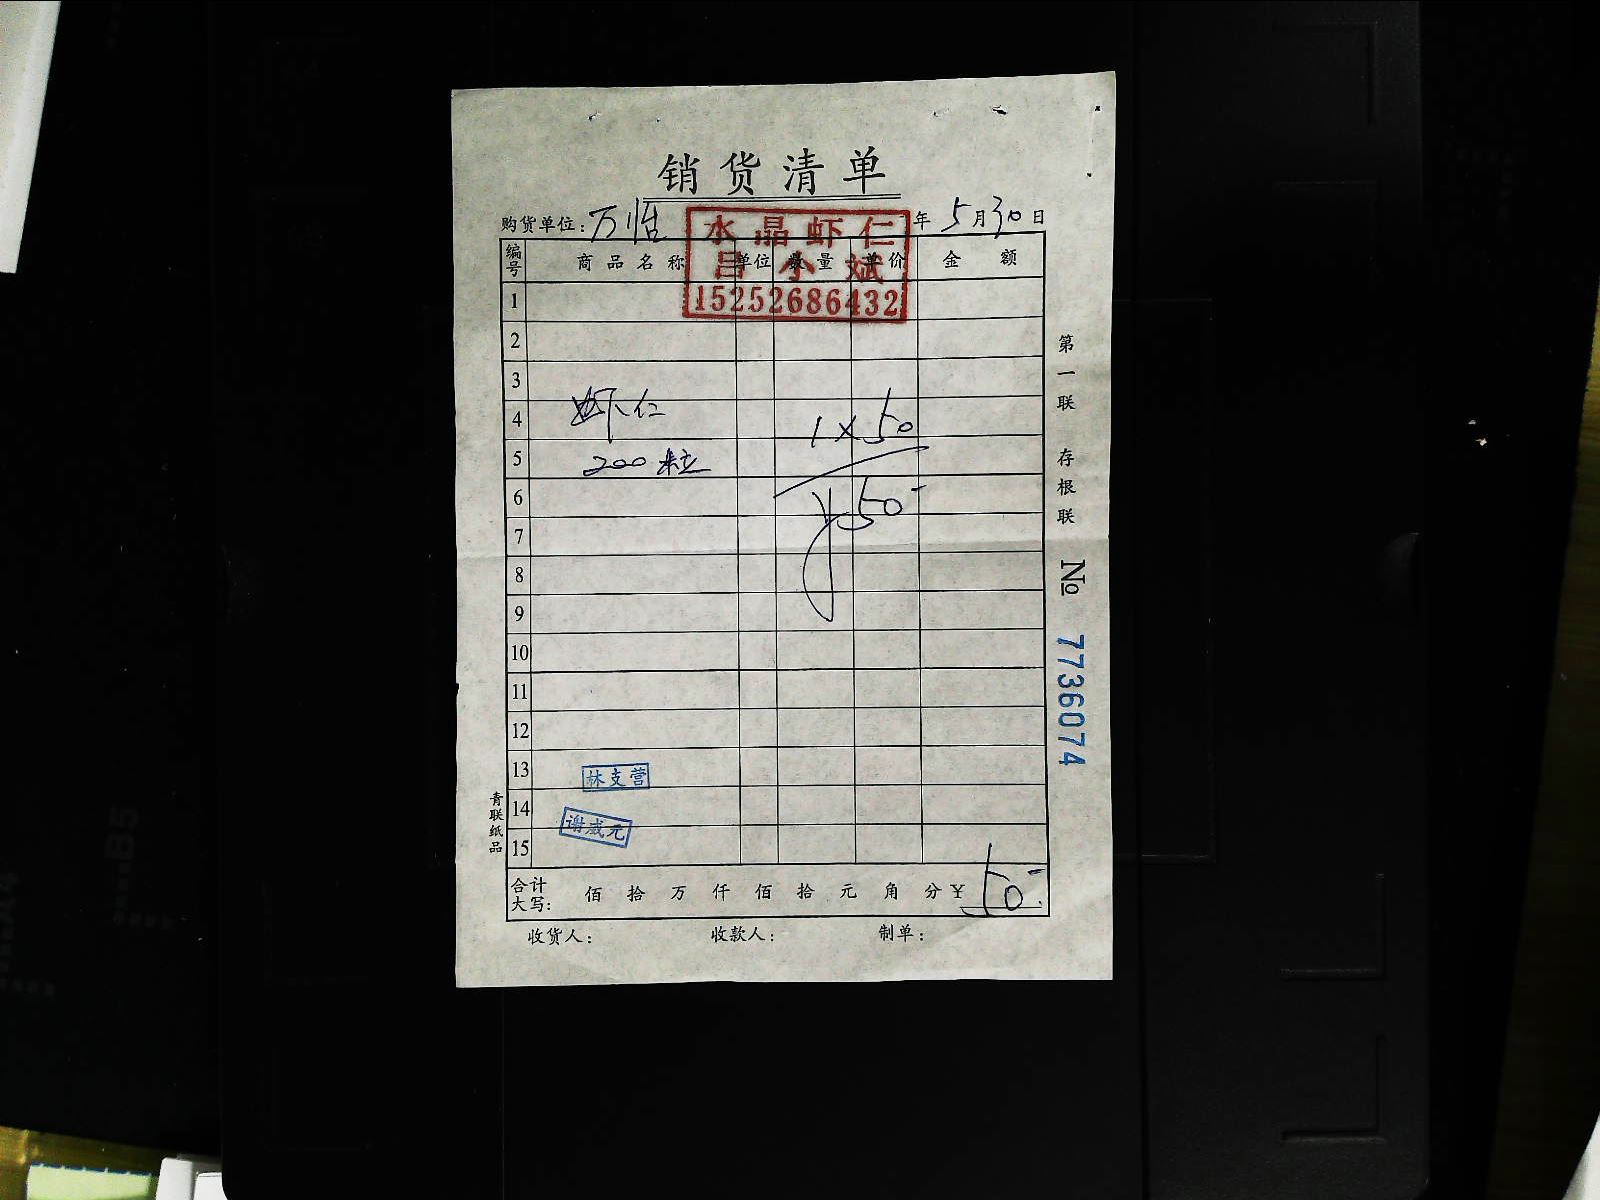 销货清单
购货单位：万恬 年 5 月 30 日
水晶虾仁
吕小斌
15252686432
编号 商品名称 单位 数量 单价 金额
1
2
3
4 虾仁 1×50
5 200粒
6 ¥50-
7
8
9
10
11
12
13 林支营
14 谢威元
15
合计大写： 佰 拾 万 仟 佰 拾 元 角 分 ¥ 50-
收货人： 收款人： 制单：
第一联 存根联
№ 7736074
青联纸品
B5
A4